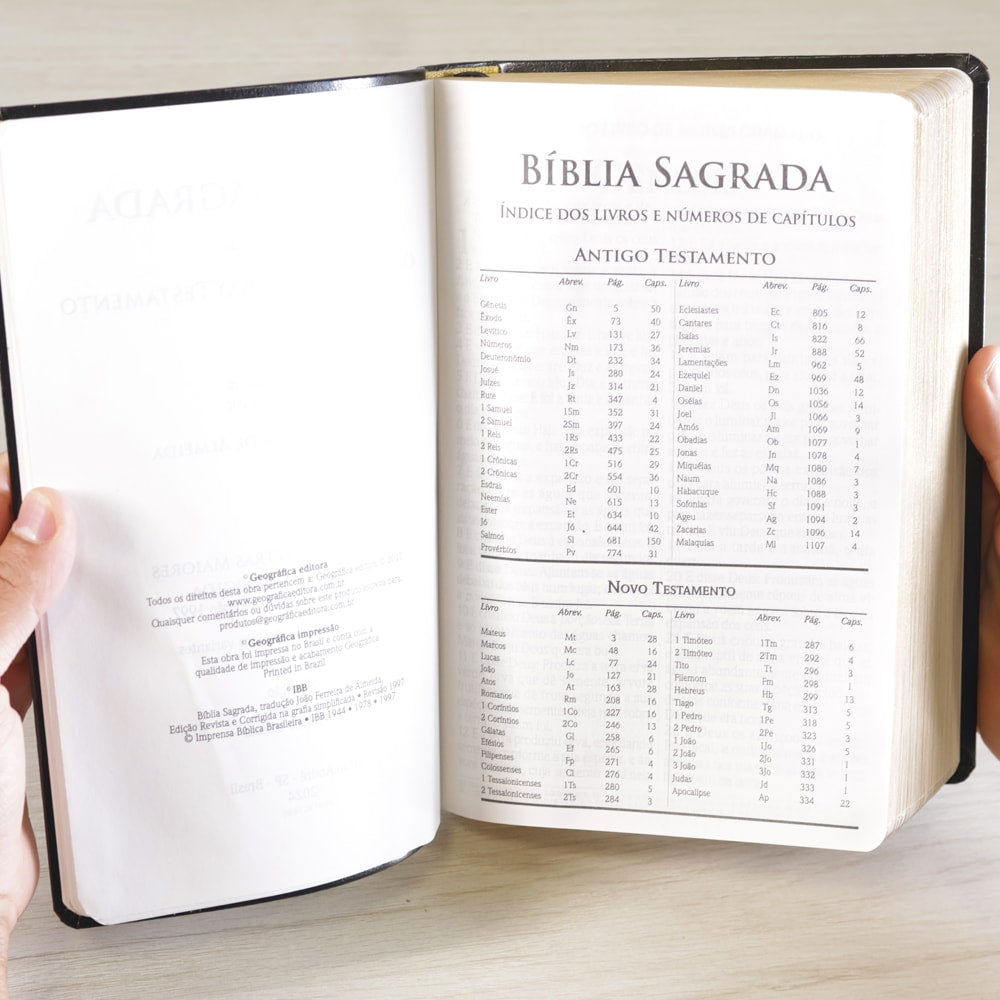 © Geográfica editora
Todos os direitos desta obra pertencem a: Geográfica editora
www.geograficaeditora.com.br
Quaisquer comentários ou dúvidas sobre este produto escreva para:
produtos@geografica.com.br
© Geográfica impressão
Esta obra foi impressa no Brasil e conta com a
qualidade de impressão e acabamento Geográfica
Printed in Brazil
© IBB
Bíblia Sagrada, tradução João Ferreira de Almeida,
Edição Revista e Corrigida na grafia simplificada • Revisão 1997
© Imprensa Bíblica Brasileira • IBB 1944 • 1978 • 1997
BÍBLIA SAGRADA
ÍNDICE DOS LIVROS E NÚMEROS DE CAPÍTULOS
ANTIGO TESTAMENTO
Livro Abrev. Pág. Caps.
Gênesis Gn 5 50
Êxodo Êx 73 40
Levítico Lv 131 27
Números Nm 173 36
Deuteronômio Dt 232 34
Josué Js 280 24
Juízes Jz 314 21
Rute Rt 347 4
1 Samuel 1Sm 352 31
2 Samuel 2Sm 397 24
1 Reis 1Rs 433 22
2 Reis 2Rs 475 25
1 Crônicas 1Cr 516 29
2 Crônicas 2Cr 554 36
Esdras Ed 601 10
Neemias Ne 615 13
Ester Et 634 10
Jó Jó 644 42
Salmos Sl 681 150
Provérbios Pv 774 31
Livro Abrev. Pág. Caps.
Eclesiastes Ec 805 12
Cantares Ct 816 8
Isaías Is 822 66
Jeremias Jr 888 52
Lamentações Lm 962 5
Ezequiel Ez 969 48
Daniel Dn 1036 12
Oséias Os 1056 14
Joel Jl 1066 3
Amós Am 1069 9
Obadias Ob 1077 1
Jonas Jn 1078 4
Miquéias Mq 1080 7
Naum Na 1086 3
Habacuque Hc 1088 3
Sofonias Sf 1091 3
Ageu Ag 1094 2
Zacarias Zc 1096 14
Malaquias Ml 1107 4
NOVO TESTAMENTO
Livro Abrev. Pág. Caps.
Mateus Mt 3 28
Marcos Mc 48 16
Lucas Lc 77 24
João Jo 127 21
Atos At 163 28
Romanos Rm 208 16
1 Coríntios 1Co 227 16
2 Coríntios 2Co 246 13
Gálatas Gl 258 6
Efésios Ef 265 6
Filipenses Fp 271 4
Colossenses Cl 276 4
1 Tessalonicenses 1Ts 280 5
2 Tessalonicenses 2Ts 284 3
Livro Abrev. Pág. Caps.
1 Timóteo 1Tm 287 6
2 Timóteo 2Tm 292 4
Tito Tt 296 3
Filemom Fm 298 1
Hebreus Hb 299 13
Tiago Tg 313 5
1 Pedro 1Pe 318 5
2 Pedro 2Pe 323 3
1 João 1Jo 326 5
2 João 2Jo 331 1
3 João 3Jo 332 1
Judas Jd 333 1
Apocalipse Ap 334 22